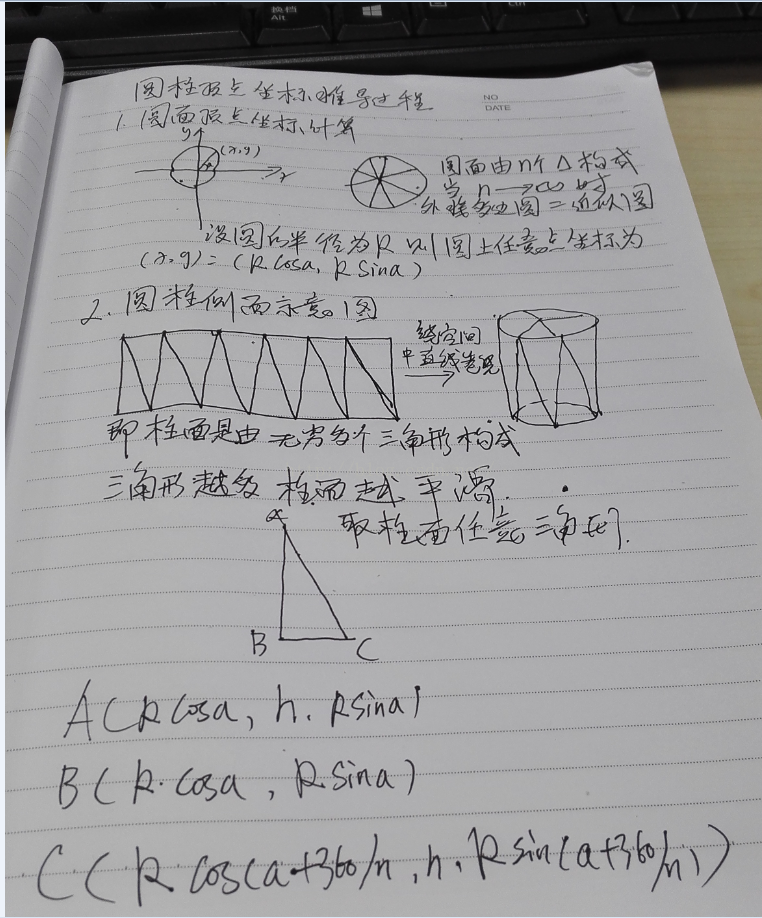 换档
Alt
Ctrl
NO
DATE
圆柱顶点坐标推导过程
1. 圆面顶点坐标计算
y
(x,y)
x
圆面由n个△构成
当 n→∞ 时
外接多边圆=近似圆
设圆的半径为R 则圆上任意点坐标为
(x,y)=(R.cosa, R sina)
2. 圆柱侧面示意图
绕空间
中直线卷曲
即柱面是由无穷多个三角形构成
三角形越多 柱面越平滑.
取柱面任意三角形.
A
B
C
A(R cosa, h. Rsina)
B(R.cosa, Rsina)
C(R cos(a+360/n, h, Rsin(a+360/n))